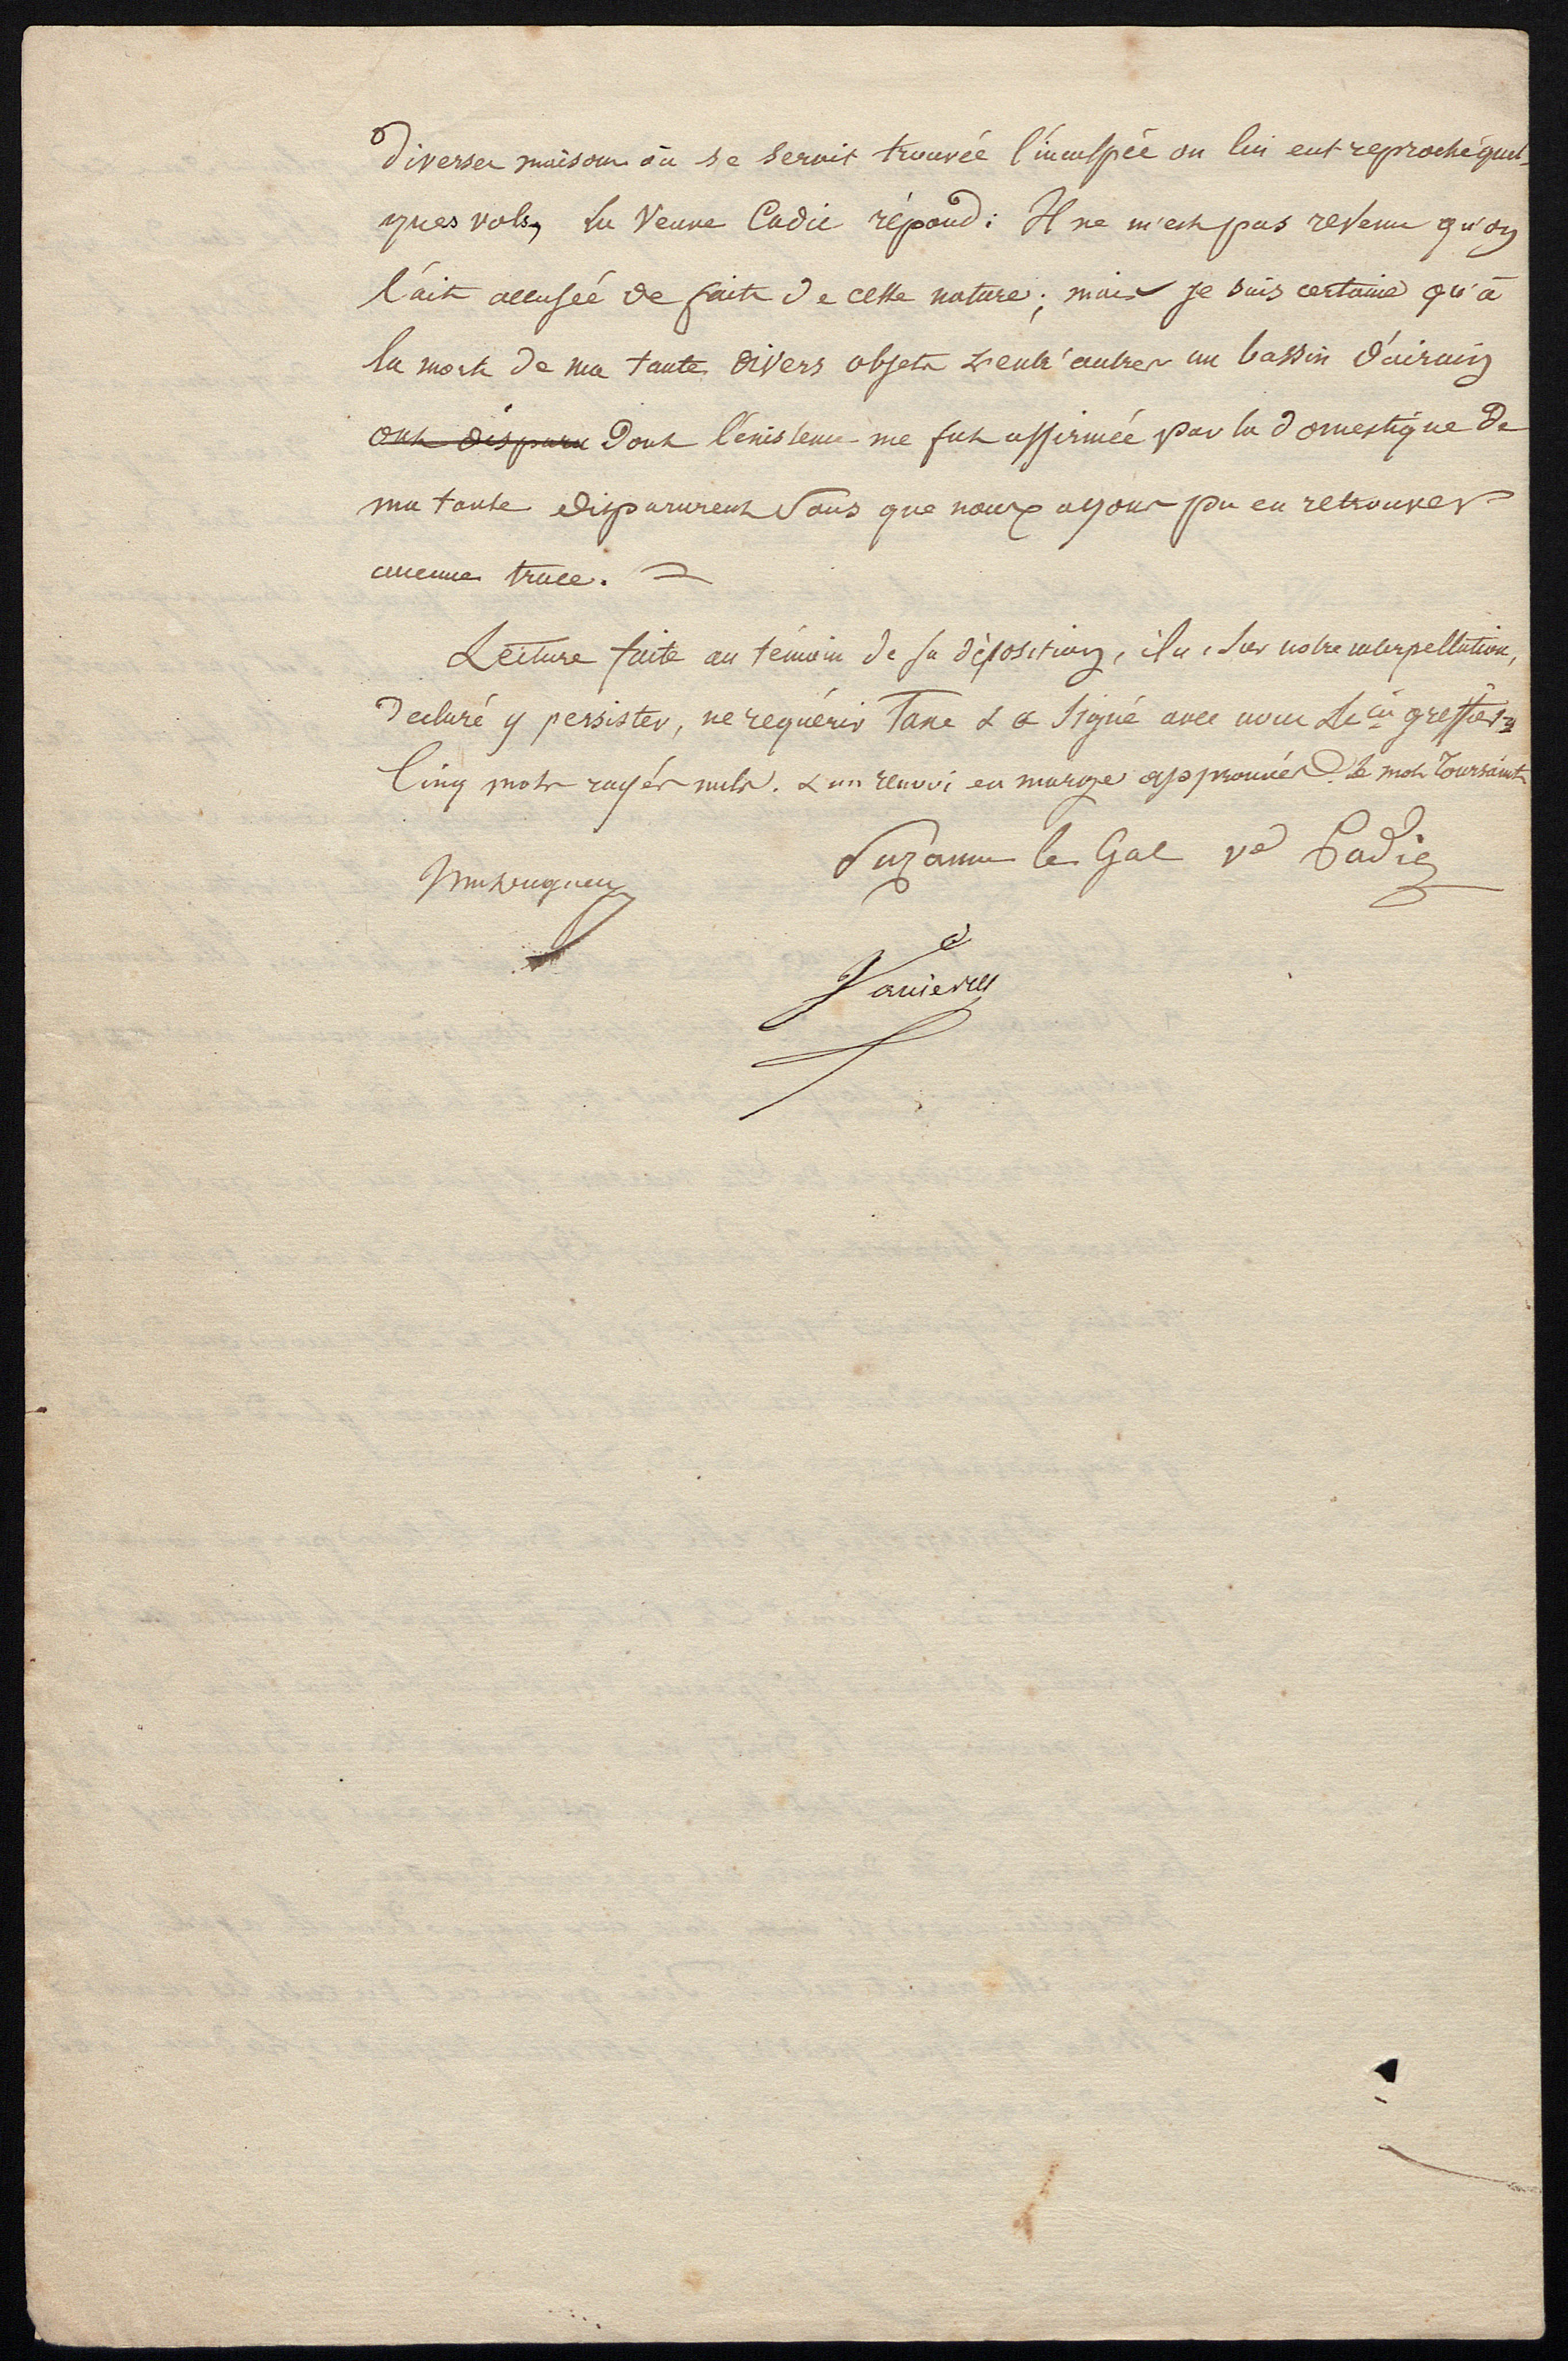 diverses maisons où se serait trouvée l'inculpée on lui eut reproché quel-
ques vols, la Veuve Cadic répond: Il ne m'est pas revenu qu'on
l'ait accusée de faits de cette nature; mais je suis certaine qu'à
la mort de ma tante divers objets & entr'autres un bassin d'airain
ont disparu dont l'existence me fut affirmée par la domestique de
ma tante disparurent sans que nous ayons pu en retrouver
aucune trace.
Lecture faite au témoin de sa déposition, il a, sur notre interpellation,
déclaré y persister, ne requérir taxe & a signé avec nous & le cis greffier
Cinq mots rayés nuls. & un renvoi en marge approuvés le mot Toursaint
Suzanne le Gal ve Cadic
Vanier